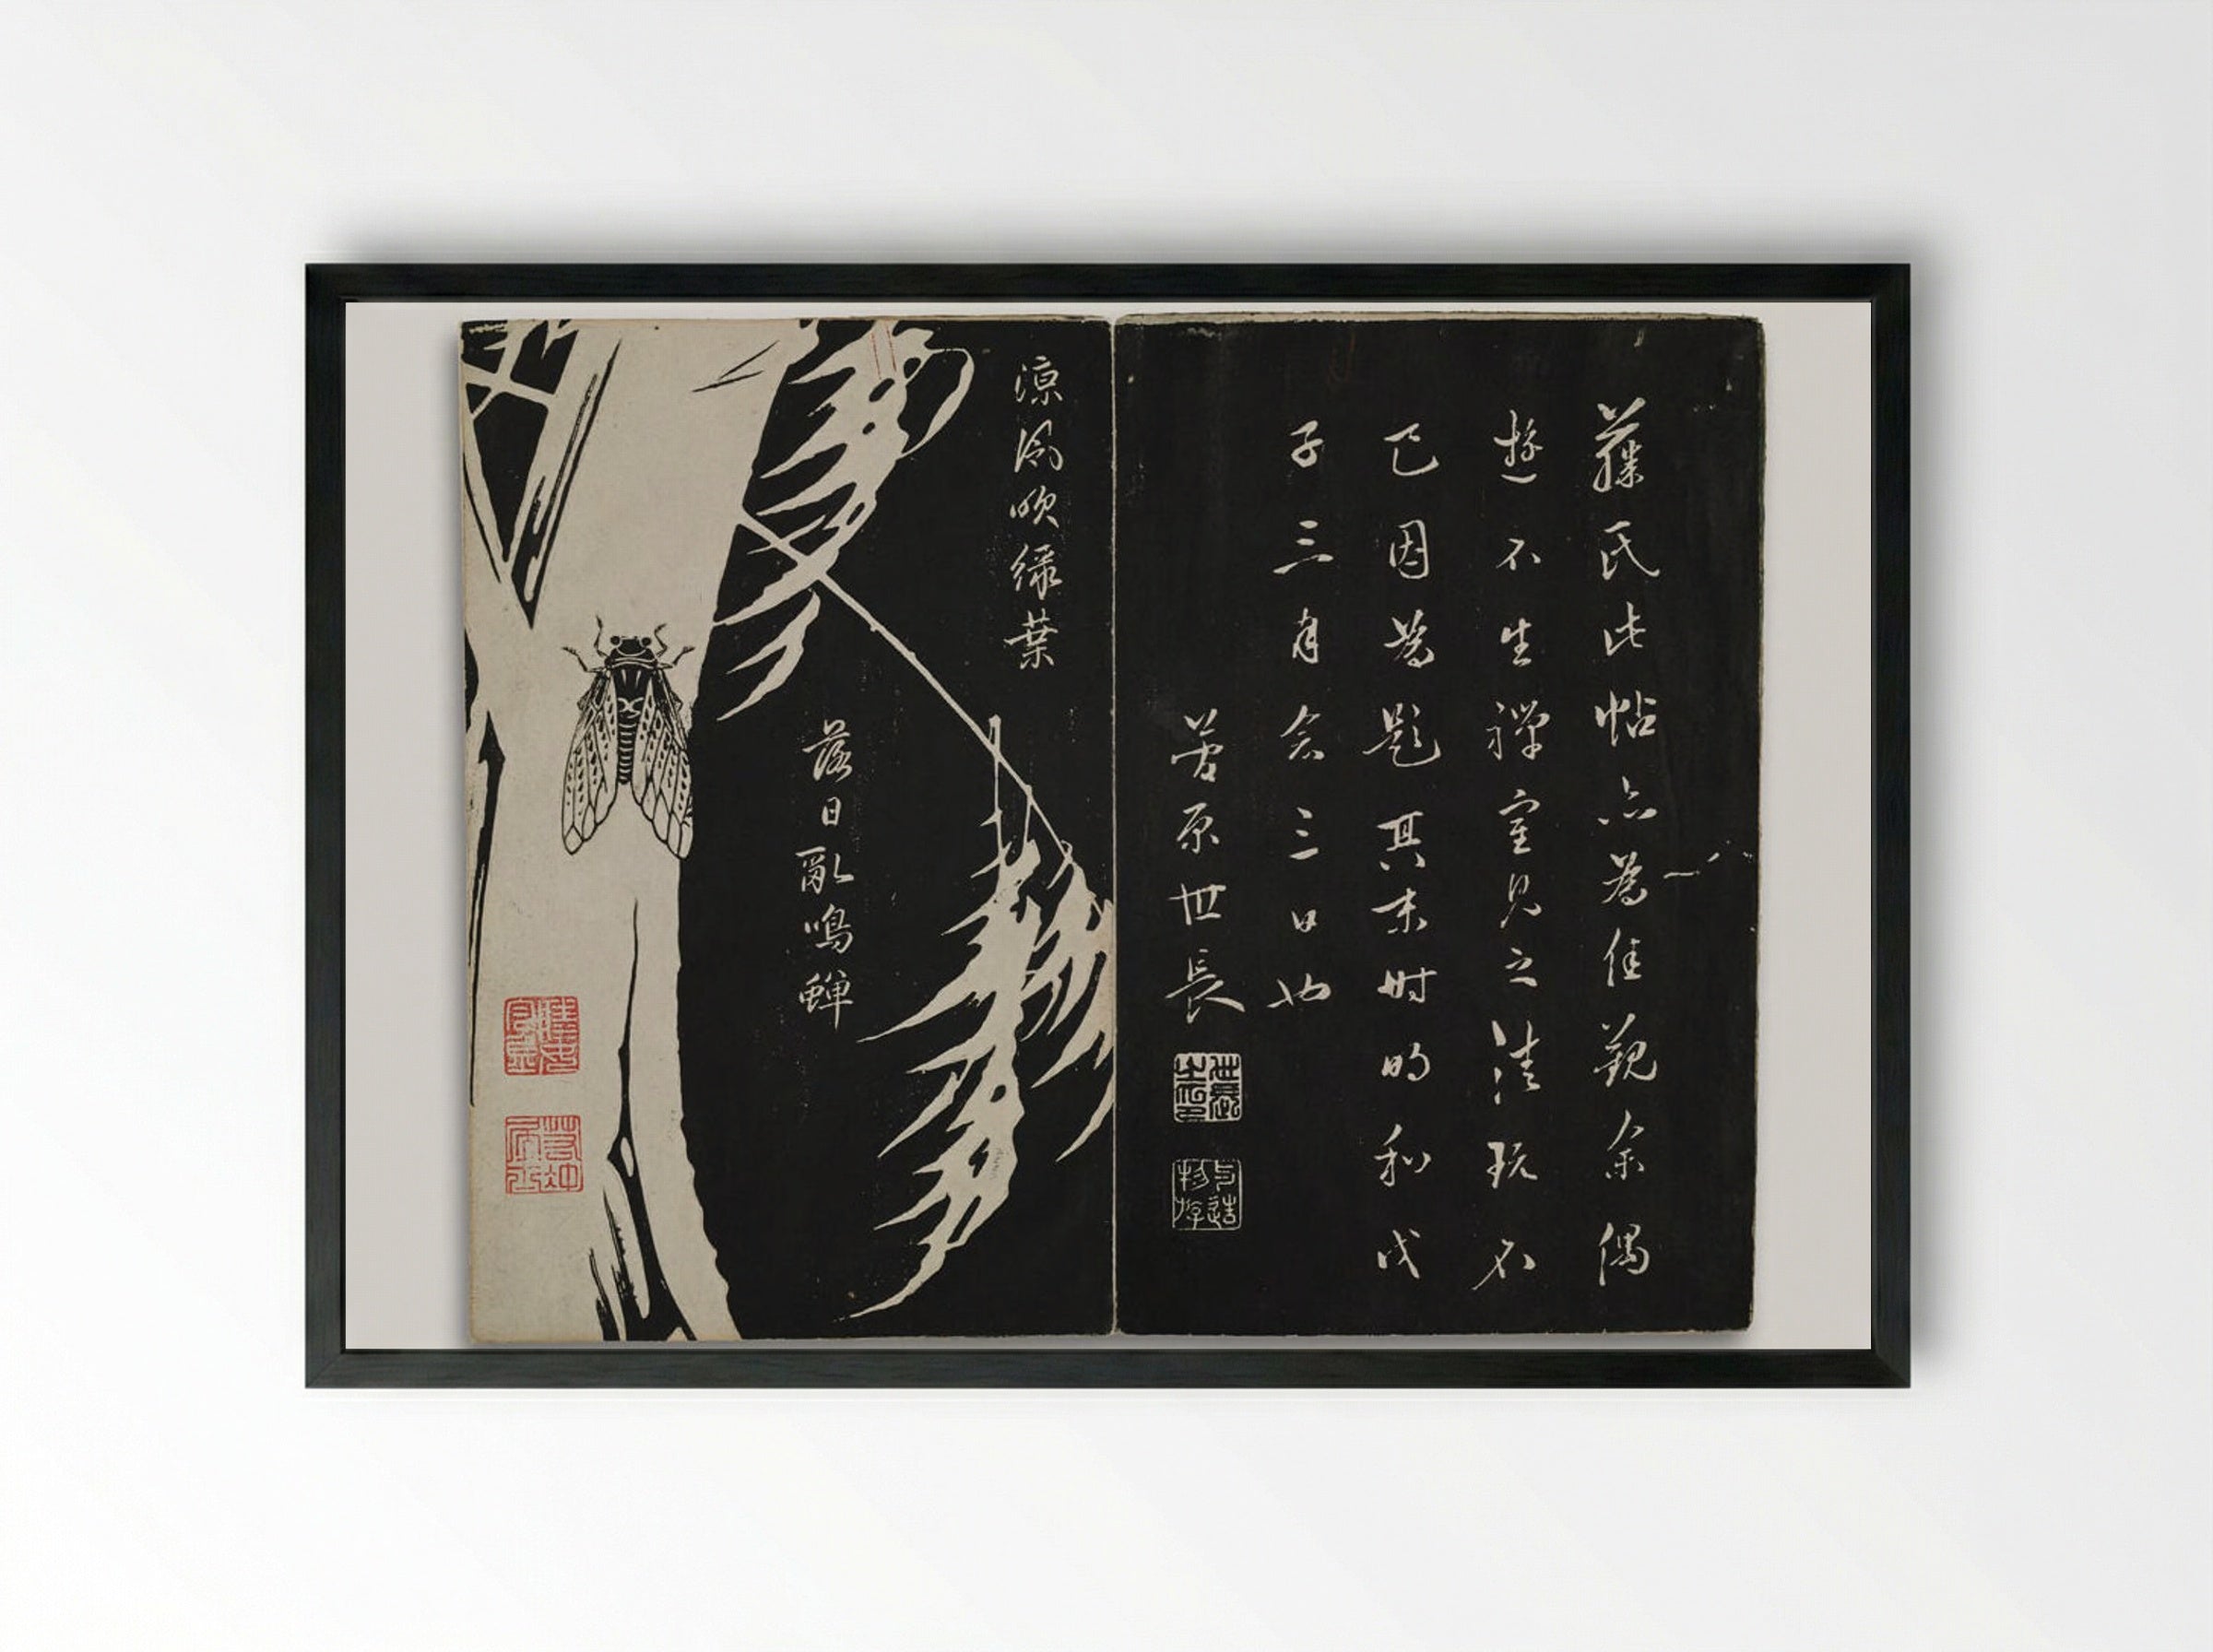 藤氏此帖亦為佳觀余偶
遊不生禅室見之清玩不
已因為題其末時明和戊
子三月念三日也
菅原世長
世長之印
涼風吹緑葉
落日亂鳴蝉